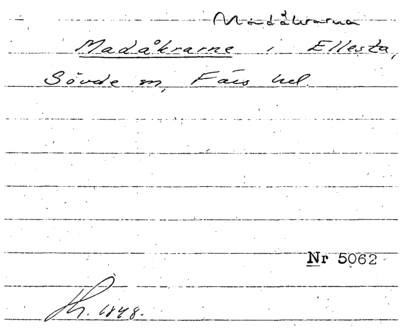 Madåkrarna
Madåkrarne i Ellesta,
Sövde sn, Färs hd.
Nr 5062
1848.